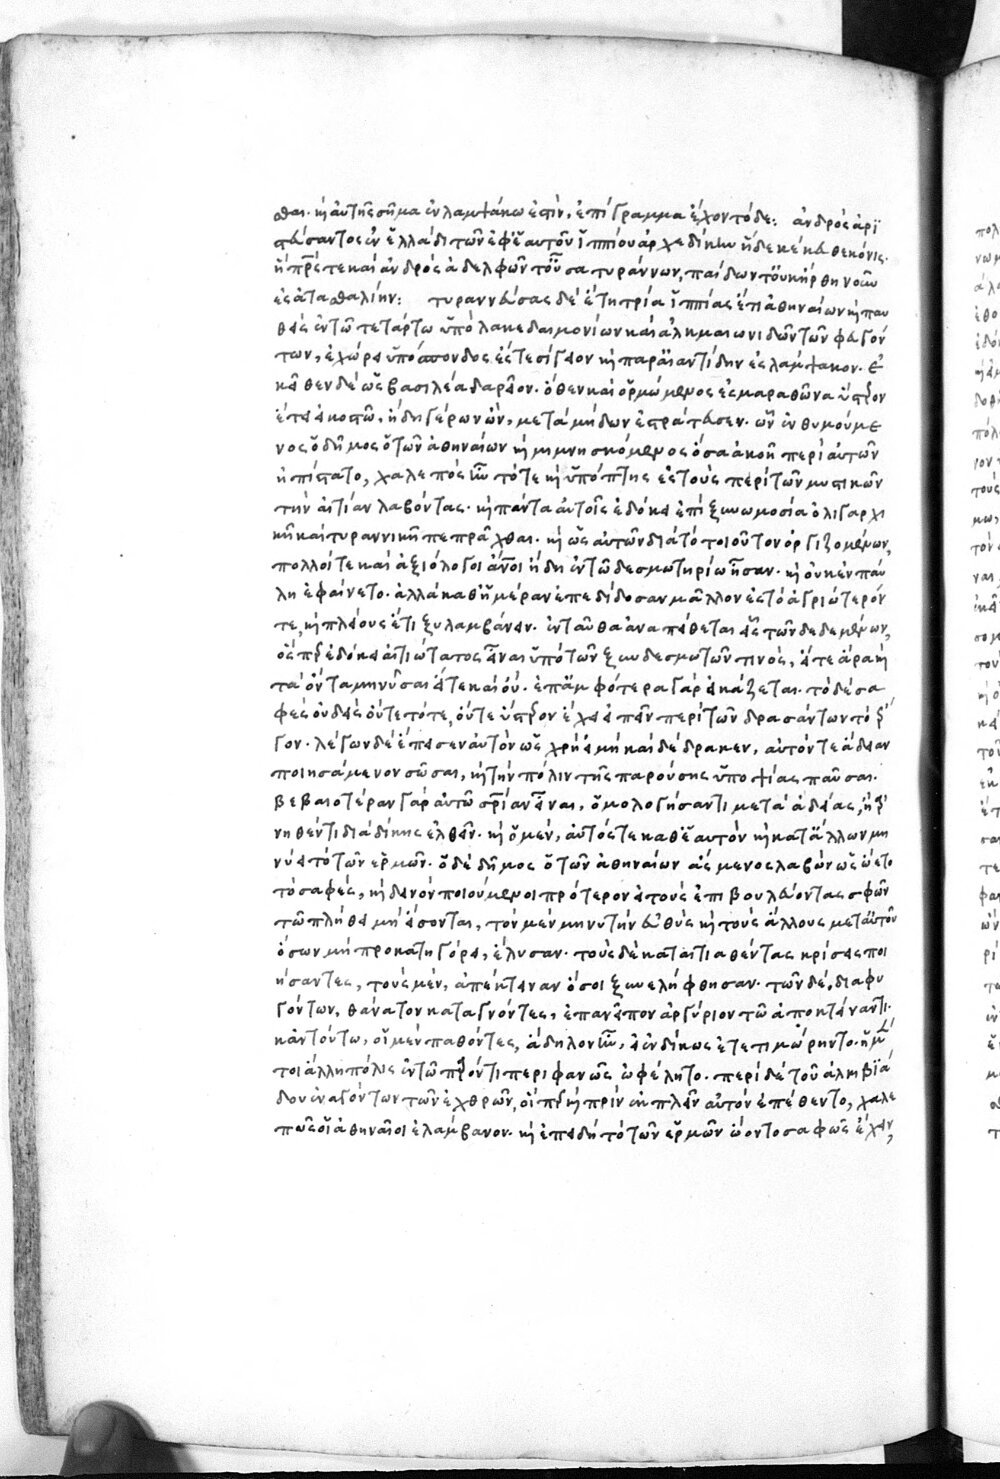 σθαι· καὶ αὐτῆς σῆμα ἐν λαμψάκω ἐστὶν, ἐπίγραμμα ἔχον τόδε: ἀνδρὸς ἀρι
στεύσαντος ἐν ἑλλάδι τῶν ἐφ' ἑαυτοῦ ἱππίου ἀρχεδίκην ἥδε κέκευθε κόνις·
ἣ πρς τε καὶ ἀνδρὸς ἀδελφῶν τ' οὖσα τυράννων, παίδων τ' οὐκ ἤρθη νοῦν
ἐς ἀτασθαλίην: τυραννεύσας δὲ ἔτη τρία ἱππίας ἔτι ἀθηναίων καὶ παυ
θεὶς ἐν τῶ τετάρτω ὑπὸ λακεδαιμονίων καὶ ἀλκμαιωνιδῶν τῶν φευγόν
των, ἐχώρει ὑπόσπονδος ἔς τε σίγειον καὶ παρ' αἰαντίδην ἐς λάμψακον· ἐ
κεῖθεν δὲ ὡς βασιλέα δαρεῖον· ὅθεν καὶ ὁρμώμενος ἐς μαραθῶνα ὕστερον
ἔτει εἰκοστῶ, ἤδη γέρων ὢν, μετὰ μήδων ἐστράτευσεν· ὧν ἐνθυμούμε
νος ὁ δῆμος ὁ τῶν ἀθηναίων καὶ μιμνησκόμενος ὅσα ἀκοῆ περὶ αὐτῶν
ἠπίστατο, χαλεπὸς ἦν τότε καὶ ὑπόπτης ἐς τοὺς περὶ τῶν μυστικῶν
τὴν αἰτίαν λαβόντας· καὶ πάντα αὐτοῖς ἐδόκει ἐπὶ ξυνωμοσία ὀλιγαρχι
κῆ καὶ τυραννικῆ πεπρᾶχθαι· καὶ ὡς αὐτῶν διὰ τὸ τοιοῦτον ὀργιζομένων,
πολλοί τε καὶ ἀξιόλογοι ἄνοι ἤδη ἐν τῶ δεσμωτηρίω ἦσαν· καὶ οὐκ ἐν παύ
λη ἐφαίνετο· ἀλλὰ καθ' ἡμέραν ἐπεδίδοσαν μᾶλλον ἐς τὸ ἀγριώτερόν
τε, καὶ πλείους ἔτι ξυλαμβάνειν· ἐνταῦθα ἀναπείθεται εἷς τῶν δεδεμένων,
ὅσπερ ἐδόκει αἰτιώτατος εἶναι ὑπὸ τῶν ξυνδεσμωτῶν τινὸς, εἴτε ἄρα καὶ
τὰ ὄντα μηνῦσαι εἴτε καὶ οὔ· ἐπ' ἀμφότερα γὰρ εἰκάζεται· τὸ δὲ σα
φὲς οὐδεὶς οὔτε τότε, οὔτε ὕστερον ἔχει εἰπεῖν περὶ τῶν δρασάντων τὸ ἔρ
γον· λέγων δὲ ἔπεισεν αὐτὸν ὡς χρὴ εἰ μὴ καὶ δέδρακεν, αὐτόν τε ἄδειαν
ποιησάμενον σῶσαι, καὶ τὴν πόλιν τῆς παρούσης ὑποψίας παῦσαι·
βεβαιοτέραν γὰρ αὐτῶ σρίαν εἶναι, ὁμολογήσαντι μετ' ἀδείας, ἢ ἀρ
νηθέντι διὰ δίκης ἐλθεῖν· καὶ ὁ μὲν, αὐτός τε καθ' ἑαυτοῦ καὶ κατ' ἄλλων μη
νύει τὸ τῶν ἑρμῶν· ὁ δὲ δῆμος ὁ τῶν ἀθηναίων ἄσμενος λαβὼν ὡς ᾤετο
τὸ σαφὲς, καὶ δεινὸν ποιούμενοι πρότερον εἰ τοὺς ἐπιβουλεύοντας σφῶν
τῶ πλήθει μὴ εἴσονται, τὸν μὲν μηνυτὴν εὐθὺς καὶ τοὺς ἄλλους μετ' αὐτοῦ
ὅσων μὴ προκατηγόρει, ἔλυσαν· τοὺς δὲ καταιτιαθέντας κρίσεις ποι
ήσαντες, τοὺς μὲν, ἀπέκτειναν ὅσοι ξυνελήφθησαν· τῶν δὲ, διαφυ
γόντων, θάνατον καταγνόντες, ἐπανεῖπον ἀργύριον τῶ ἀποκτείναντι·
κἀν τούτω, οἱ μὲν παθόντες, ἄδηλον ἦν, εἰ ἀδίκως ἐτετιμώρηντο· ἡ μέν
τοι ἄλλη πόλις ἐν τῶ παρόντι περιφανῶς ὠφέλητο· περὶ δὲ τοῦ ἀλκιβιά
δου ἐναγόντων τῶν ἐχθρῶν, οἵπερ καὶ πρὶν ἐκπλεῖν αὐτὸν ἐπέθεντο, χαλε
πῶς οἱ ἀθηναῖοι ἐλάμβανον· καὶ ἐπειδὴ τὸ τῶν ἑρμῶν ᾤοντο σαφῶς ἔχειν,